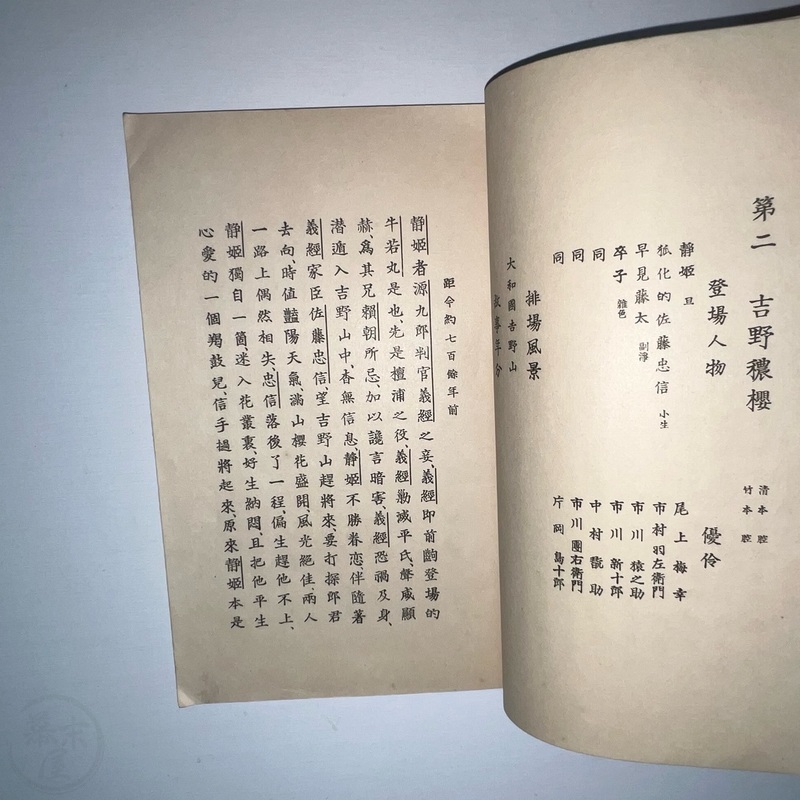 第二 吉野穠櫻
清本腔
竹本腔
登場人物 優伶
靜姬 旦 尾上梅幸
狐化的佐藤忠信 小生 市村羽左衞門
早見藤太 副淨 市川猿之助
卒子 雜色 市川新十郎
同 中村 助
同 市川團右衞門
同 片岡島十郎
排場風景
大和國吉野山
敍事年分
距今約七百餘年前
靜姬者源九郎判官義經之妾、義經即前齣登場的
牛若丸是也、先是檀浦之役、義經勦滅平氏、聲威顯
赫、爲其兄賴朝所忌、加以讒言暗害、義經恐禍及身、
潜遁入吉野山中、杳無信息、靜姬不勝眷恋、伴隨著
義經家臣佐藤忠信、望吉野山趕將來、要打探郎君
去向、時値豔陽天氣、滿山櫻花盛開、風光絕佳、兩人
一路上偶然相失、忠信落後了一程、偏生趕他不上、
靜姬獨自一箇、迷入花叢裏、好生納悶、且把他平生
心愛的一個羯鼓兒、信手撾將起來、原來靜姬本是